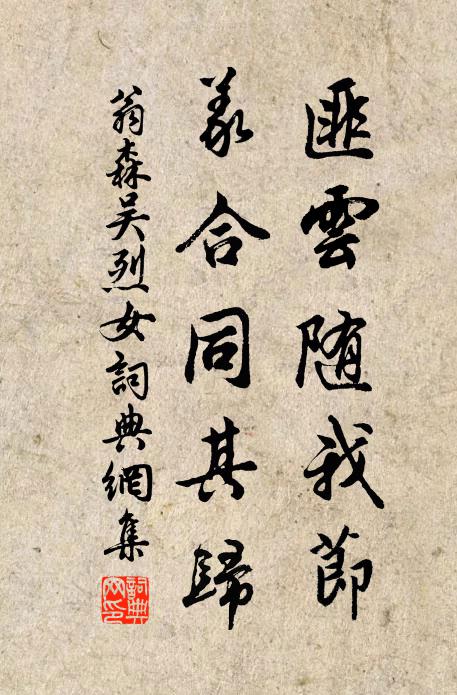 匪雲随我節
義合同其歸
翁森吴烈女詞典網集
詞典網印